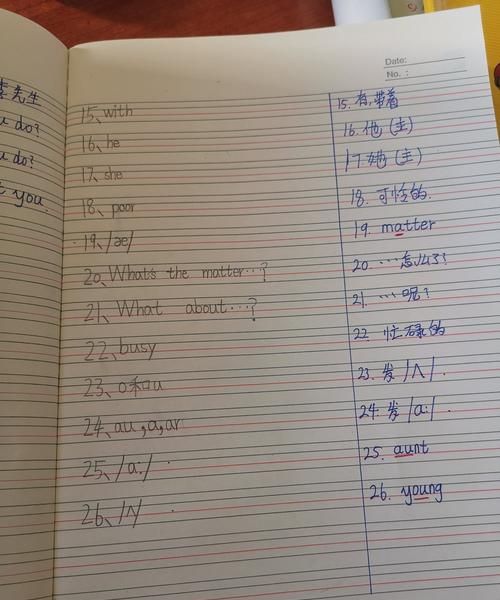 李先生
u do?
u do?
t you.
Date:
No. :
15、with
16、he
17、she
18、poor
19、/æ/
20、What's the matter…?
21、What about…?
22、busy
23、o和ou
24、au,a,ar
25、/ɑː/
26、/ʌ/
15. 有,带着
16. 他 (主)
17 她 (主)
18. 可怜的.
19. matter
20. …怎么了?
21. …呢?
22. 忙碌的
23. 发 /ʌ/ .
24. 发 /ɑː/ .
25. aunt
26. young